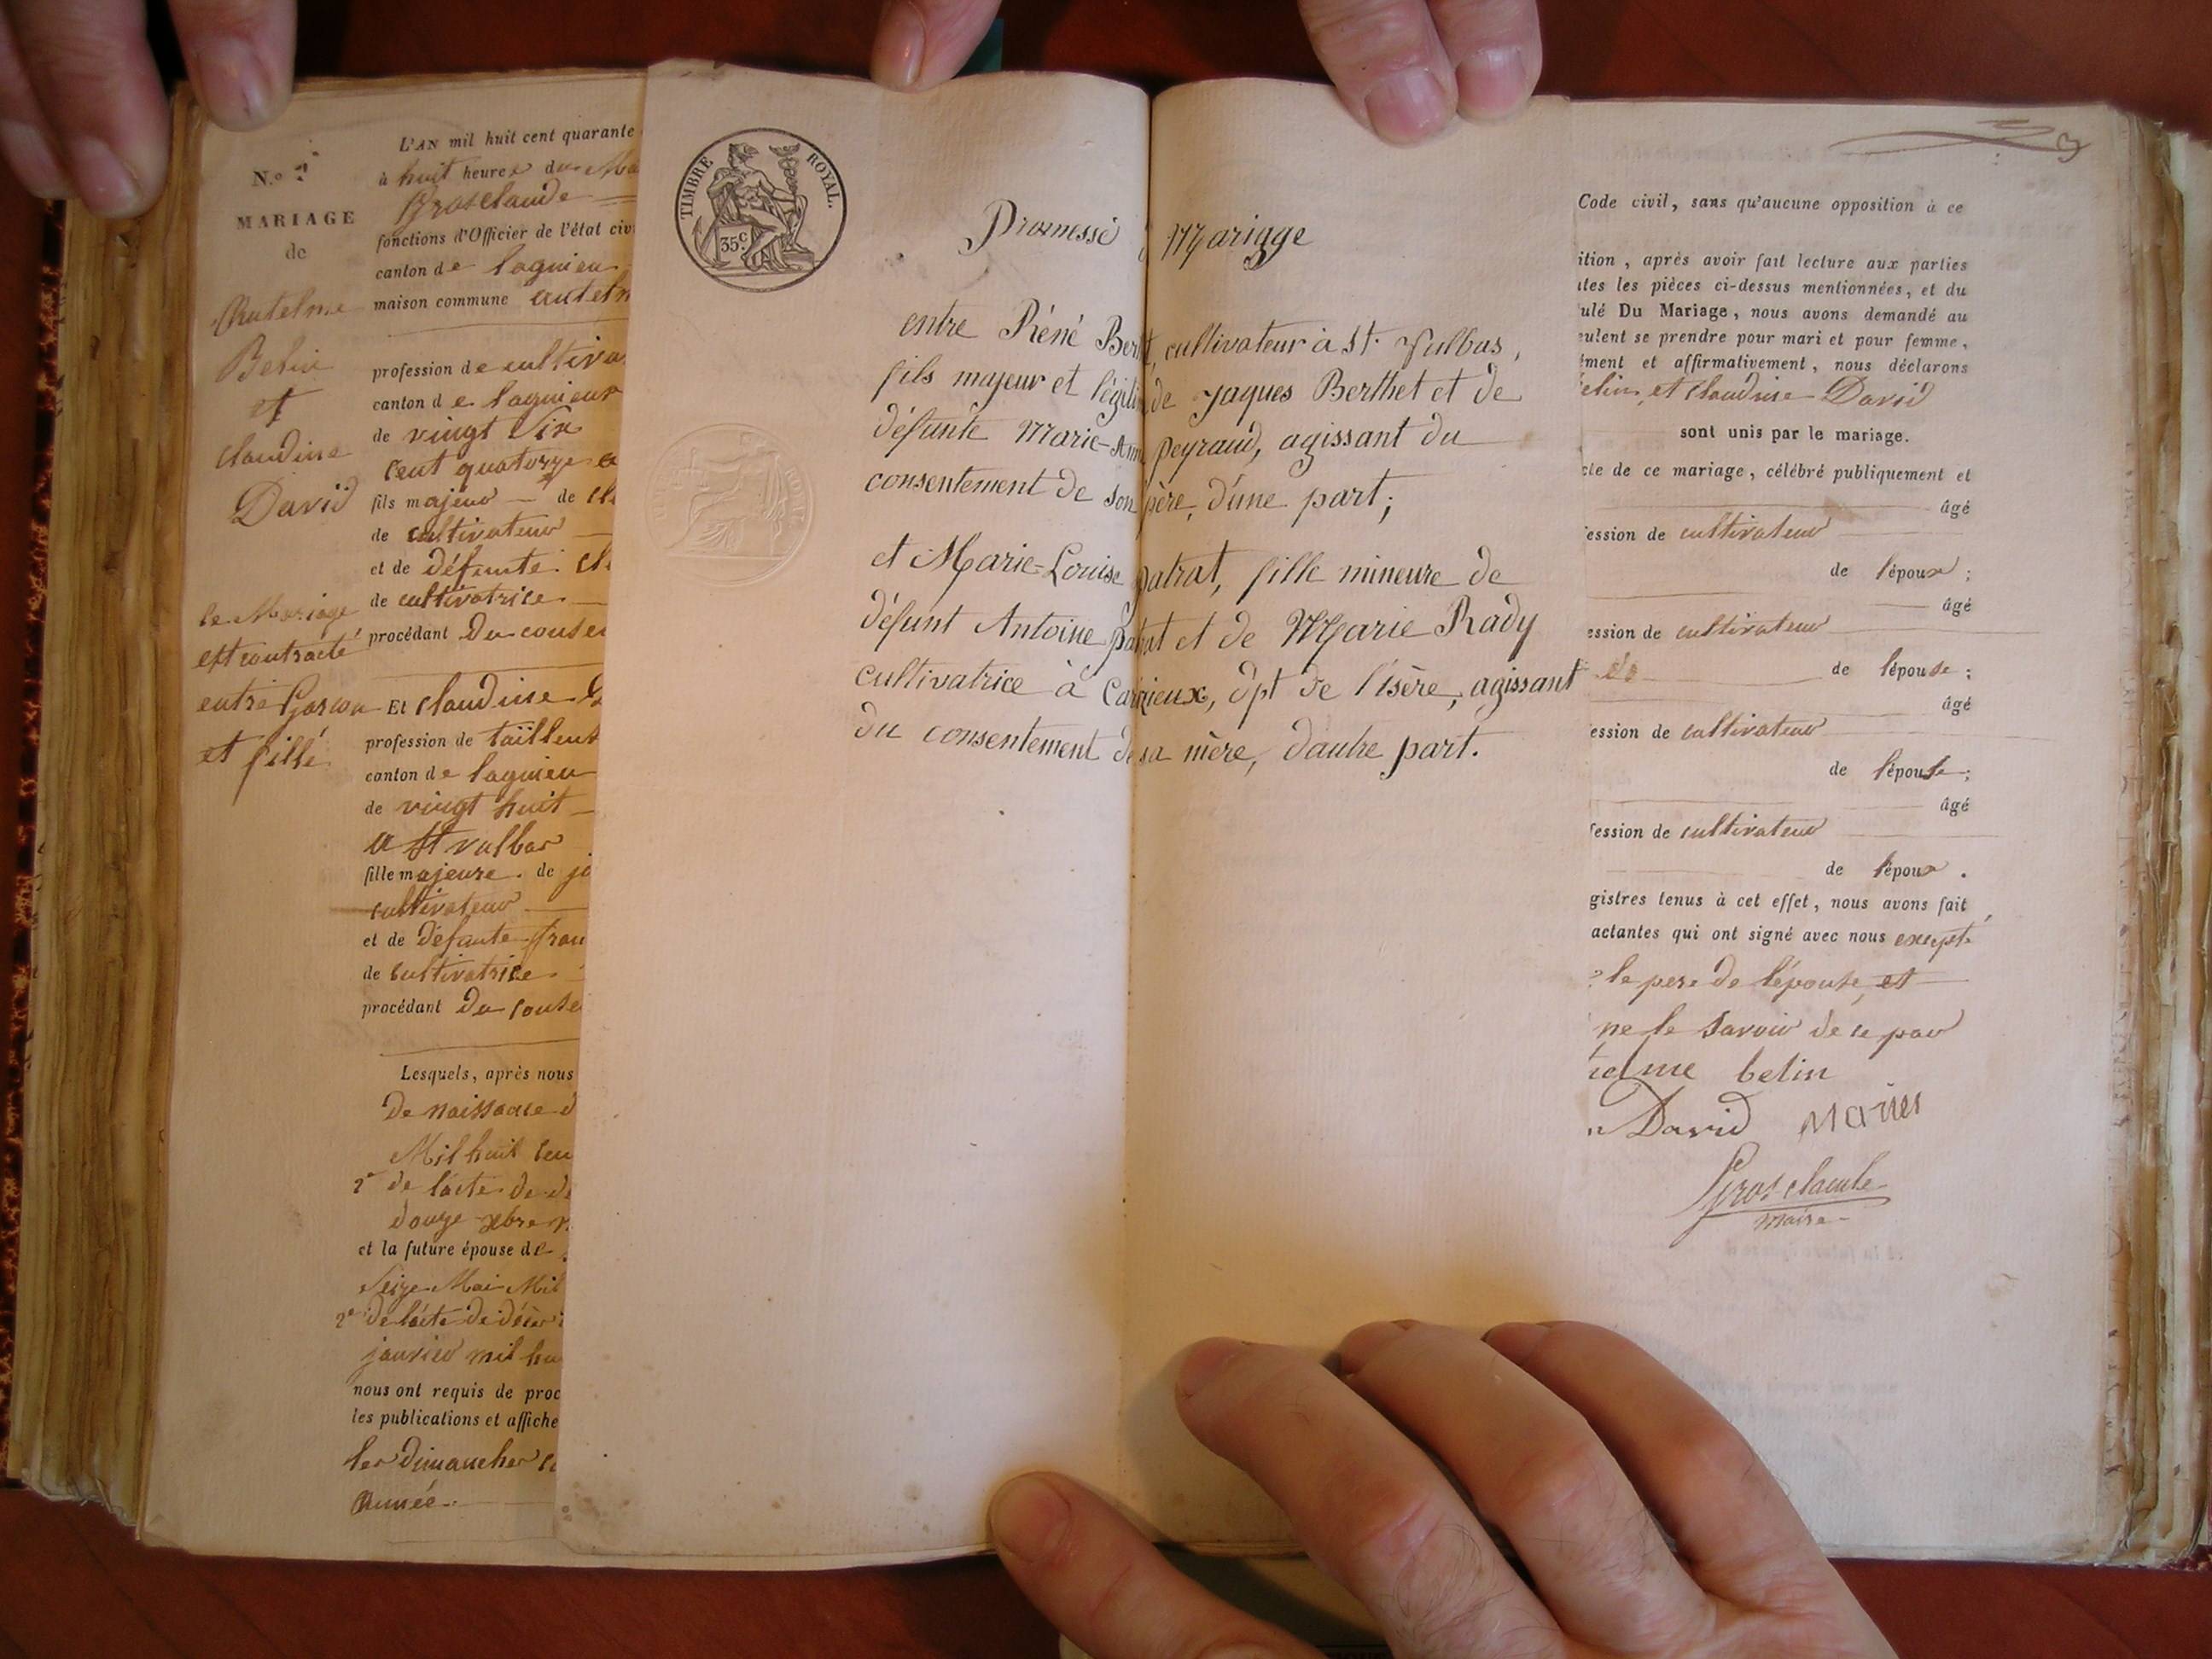 N.o
MARIAGE
de
Antelme
Belin
et
Claudine
David
le Mariage
est contracté
entre Garcon
et fille
L'AN mil huit cent quarante
à huit heures du Ma
Grosclaude
fonctions d'Officier de l'état civ
canton de lagnieu
maison commune antelm
profession de cultiva
canton de lagnieu
de vingt Six
cent quatorze
fils majeur de cl
de cultivateur
et de défunte cl
de cultivatrice
procédant du conse
Et Claudine
profession de tailleus
canton de lagnieu
de vingt huit
a St vulbas
fille majeure de j
cultivateur
et de défunte fran
de cultivatrice
procédant du conse
Lesquels, après nous
de naissance d
Mil huit cen
2° de l'acte de dé
douze xbre
et la future épouse de
Seize Mai Mil
2° de l'acte de décès
janvier mil hu
nous ont requis de proc
les publications et affiche
les dimanches
année
TIMBRE ROYAL.
35c
Promesse de Mariage
entre Réné Bert, cultivateur à St. Vulbas,
fils majeur et légiti de Jaques Berthet et de
défunte Marie-Ann Peyraud, agissant du
consentement de son père, d'une part;
et Marie-Louise Patrat, fille mineure de
défunt Antoine Patrat et de Marie Rady
cultivatrice à Carrieux, dpt de l'isère, agissant
du consentement de sa mère, d'autre part.
Code civil, sans qu'aucune opposition à ce
ition, après avoir fait lecture aux parties
utes les pièces ci-dessus mentionnées, et du
ulé Du Mariage, nous avons demandé au
eulent se prendre pour mari et pour femme,
ément et affirmativement, nous déclarons
elin, et Claudine David
sont unis par le mariage.
cte de ce mariage, célébré publiquement et
âgé
ession de cultivateur
de l'époux;
âgé
ession de cultivateur
de l'épouse;
âgé
ession de cultivateur
de l'épouse;
âgé
fession de cultivateur
de l'époux.
gistres tenus à cet effet, nous avons fait
actantes qui ont signé avec nous excepté
le pere de l'épouse, et
ne le savoir de ce par
telme belin
David
Grosclaude
Maire